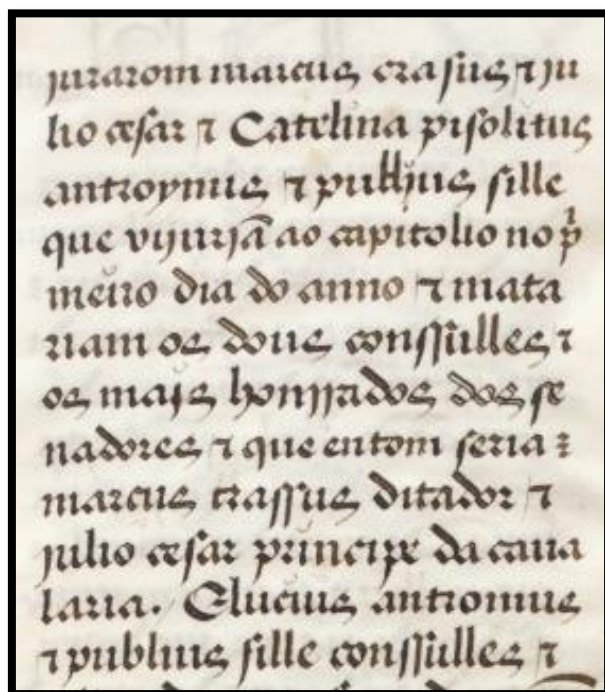 jurarom marcus crasus ⁊ ju
lio cesar ⁊ Catelina pisolitus
antroynius ⁊ pulljus sille
que vijnrjã ao capitolio no pⁱ
meiro dia do anno ⁊ mata
riam os dous conssulles ⁊
os majs honrrados dos se
nadores ⁊ que entom seria
marcus crassus ditador ⁊
julio cesar principe da caua
laria. Elucius antronius
⁊ publius sille conssulles ⁊